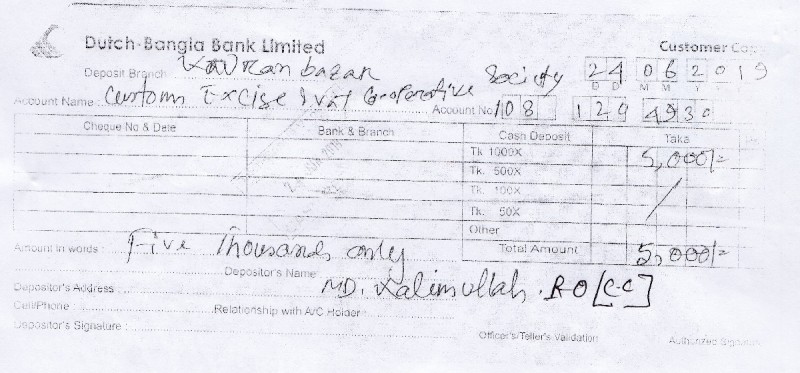 Dutch-Bangla Bank Limited
Customer Copy
Deposit Branch : Kawran bazar
24 06 2019
D D M M Y
Account Name : Custom Excise & vat Co-operative Society
Account No. 108 129 4930
Cheque No & Date Bank & Branch Cash Deposit Taka
Tk 1000X 5,000/=
Tk. 500X
Tk. 100X
Tk. 50X
Other
Amount In words : Five Thousands only Total Amount 5,000/=
Depositor's Name MD. Kalimullah. RO [C.C]
Depositor's Address :
Cell/Phone : Relationship with A/C Holder :
Depositor's Signature : Officer's/Teller's Validation Authorized Signature